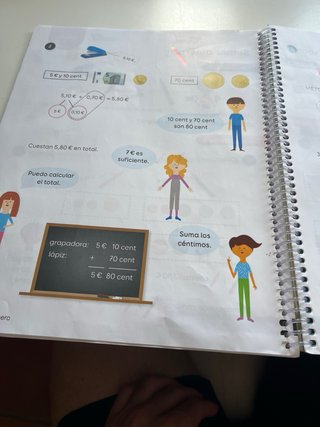 5,10 €
5 € y 10 cent
70 cent
5,10 € + 0,70 € = 5,80 €
5 € 0,10 €
10 cent y 70 cent
son 80 cent
Cuestan 5,80 € en total.
7 € es
suficiente.
Puedo calcular
el total.
Suma los
céntimos.
grapadora: 5 € 10 cent
lápiz: + 70 cent
5 € 80 cent